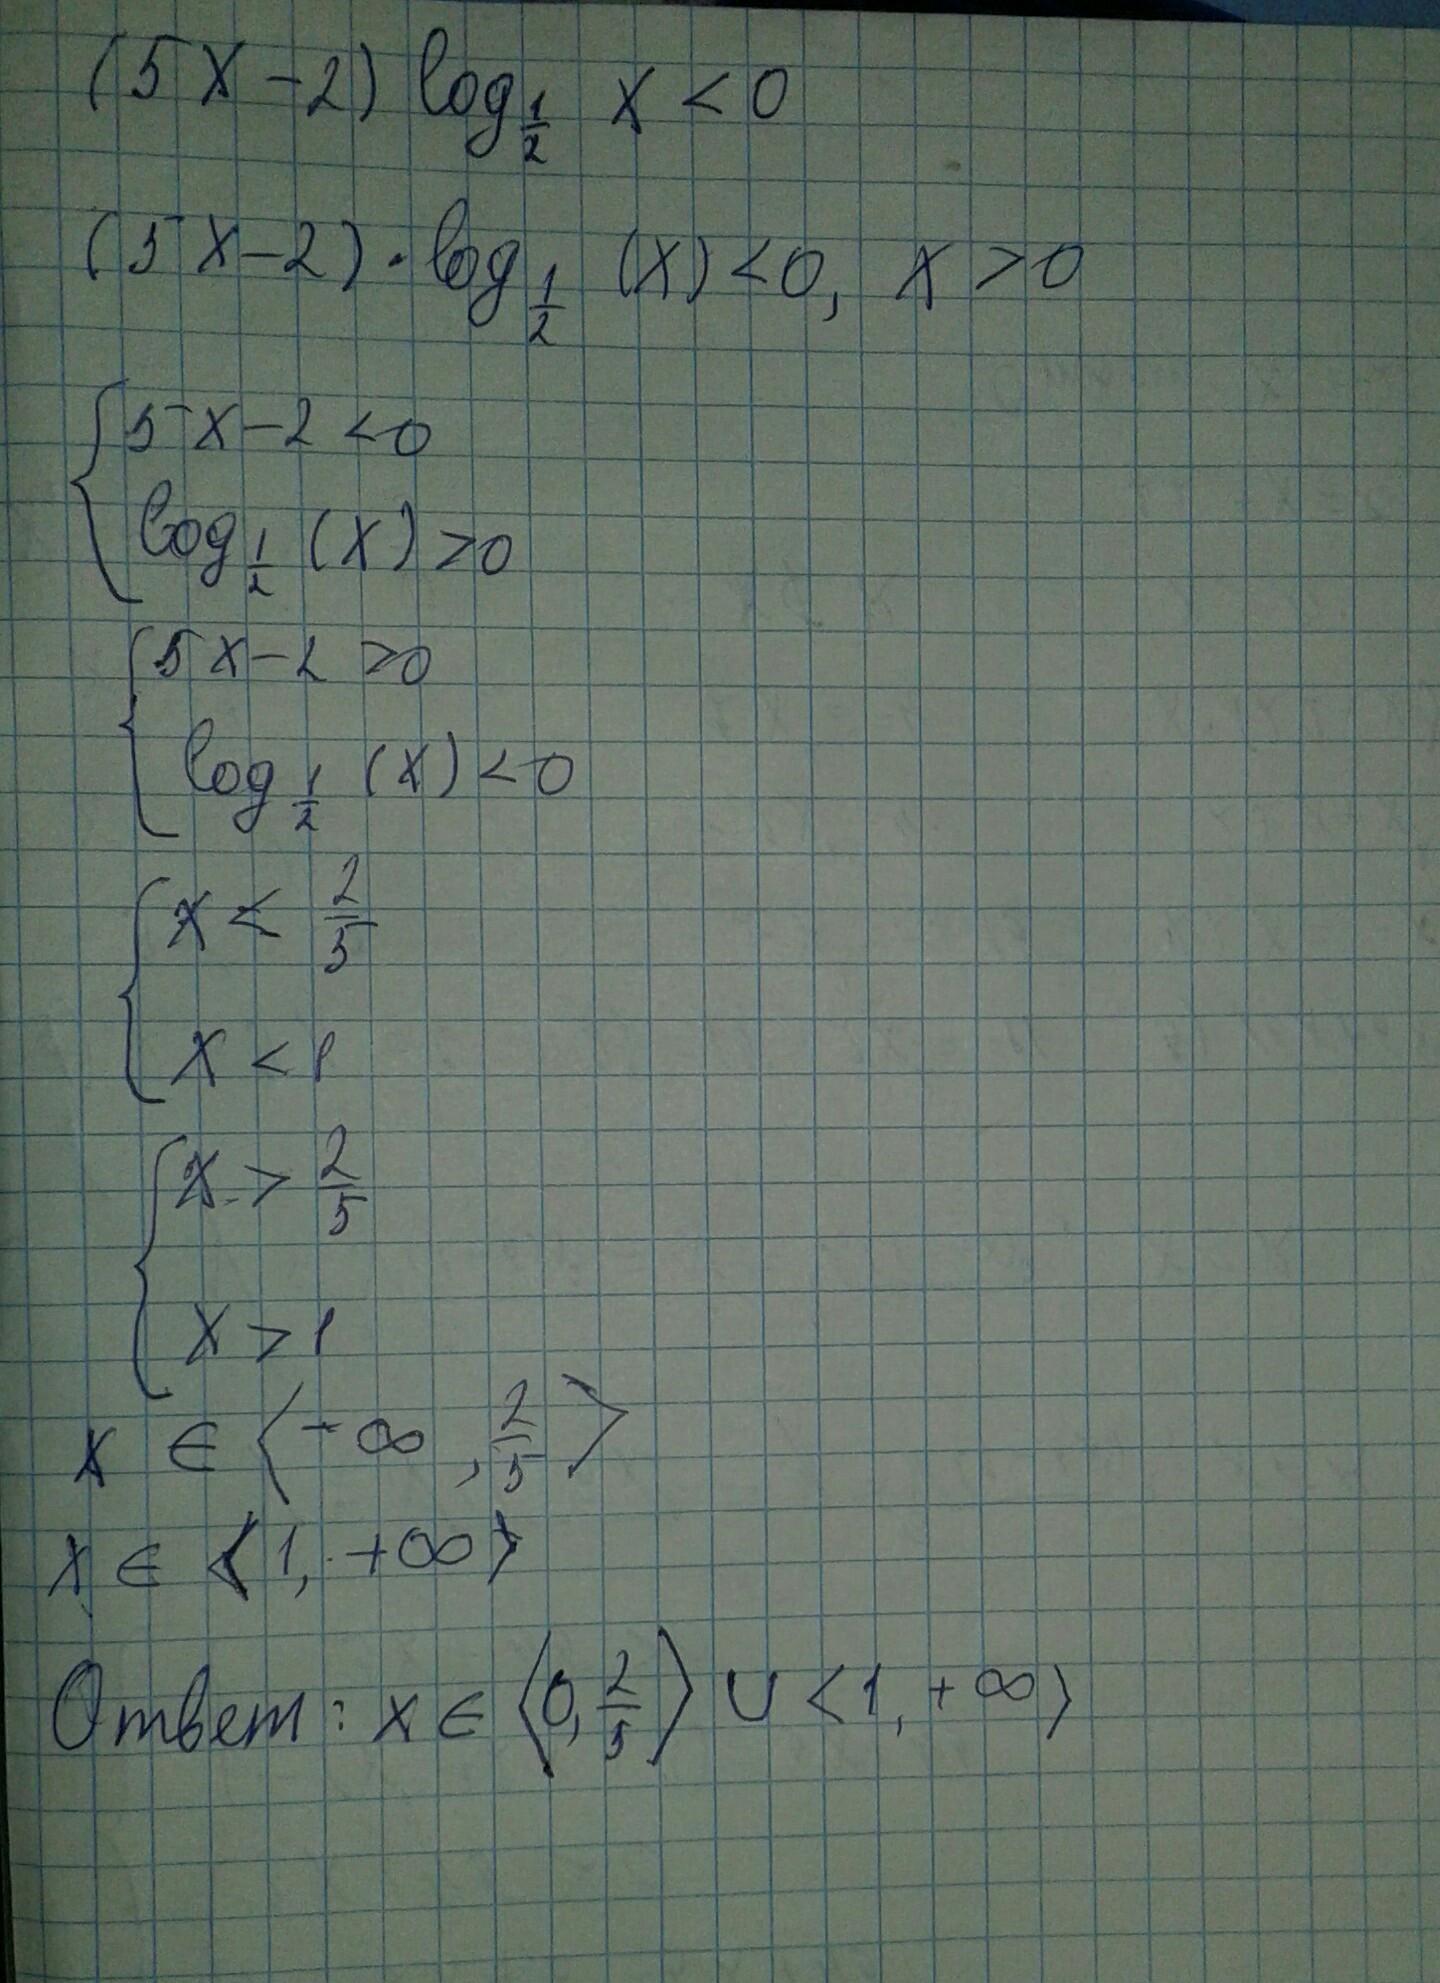 (5x-2) log 1/2 x < 0
(5x-2) · log 1/2 (x) < 0, x > 0
{ 5x-2 < 0
log 1/2 (x) > 0
{ 5x-2 > 0
log 1/2 (x) < 0
{ x < 2/5
x < 1
{ x > 2/5
x > 1
x ∈ ⟨-∞, 2/5⟩
x ∈ ⟨1, +∞⟩
Ответ: x ∈ ⟨0, 2/5⟩ ∪ ⟨1, +∞⟩